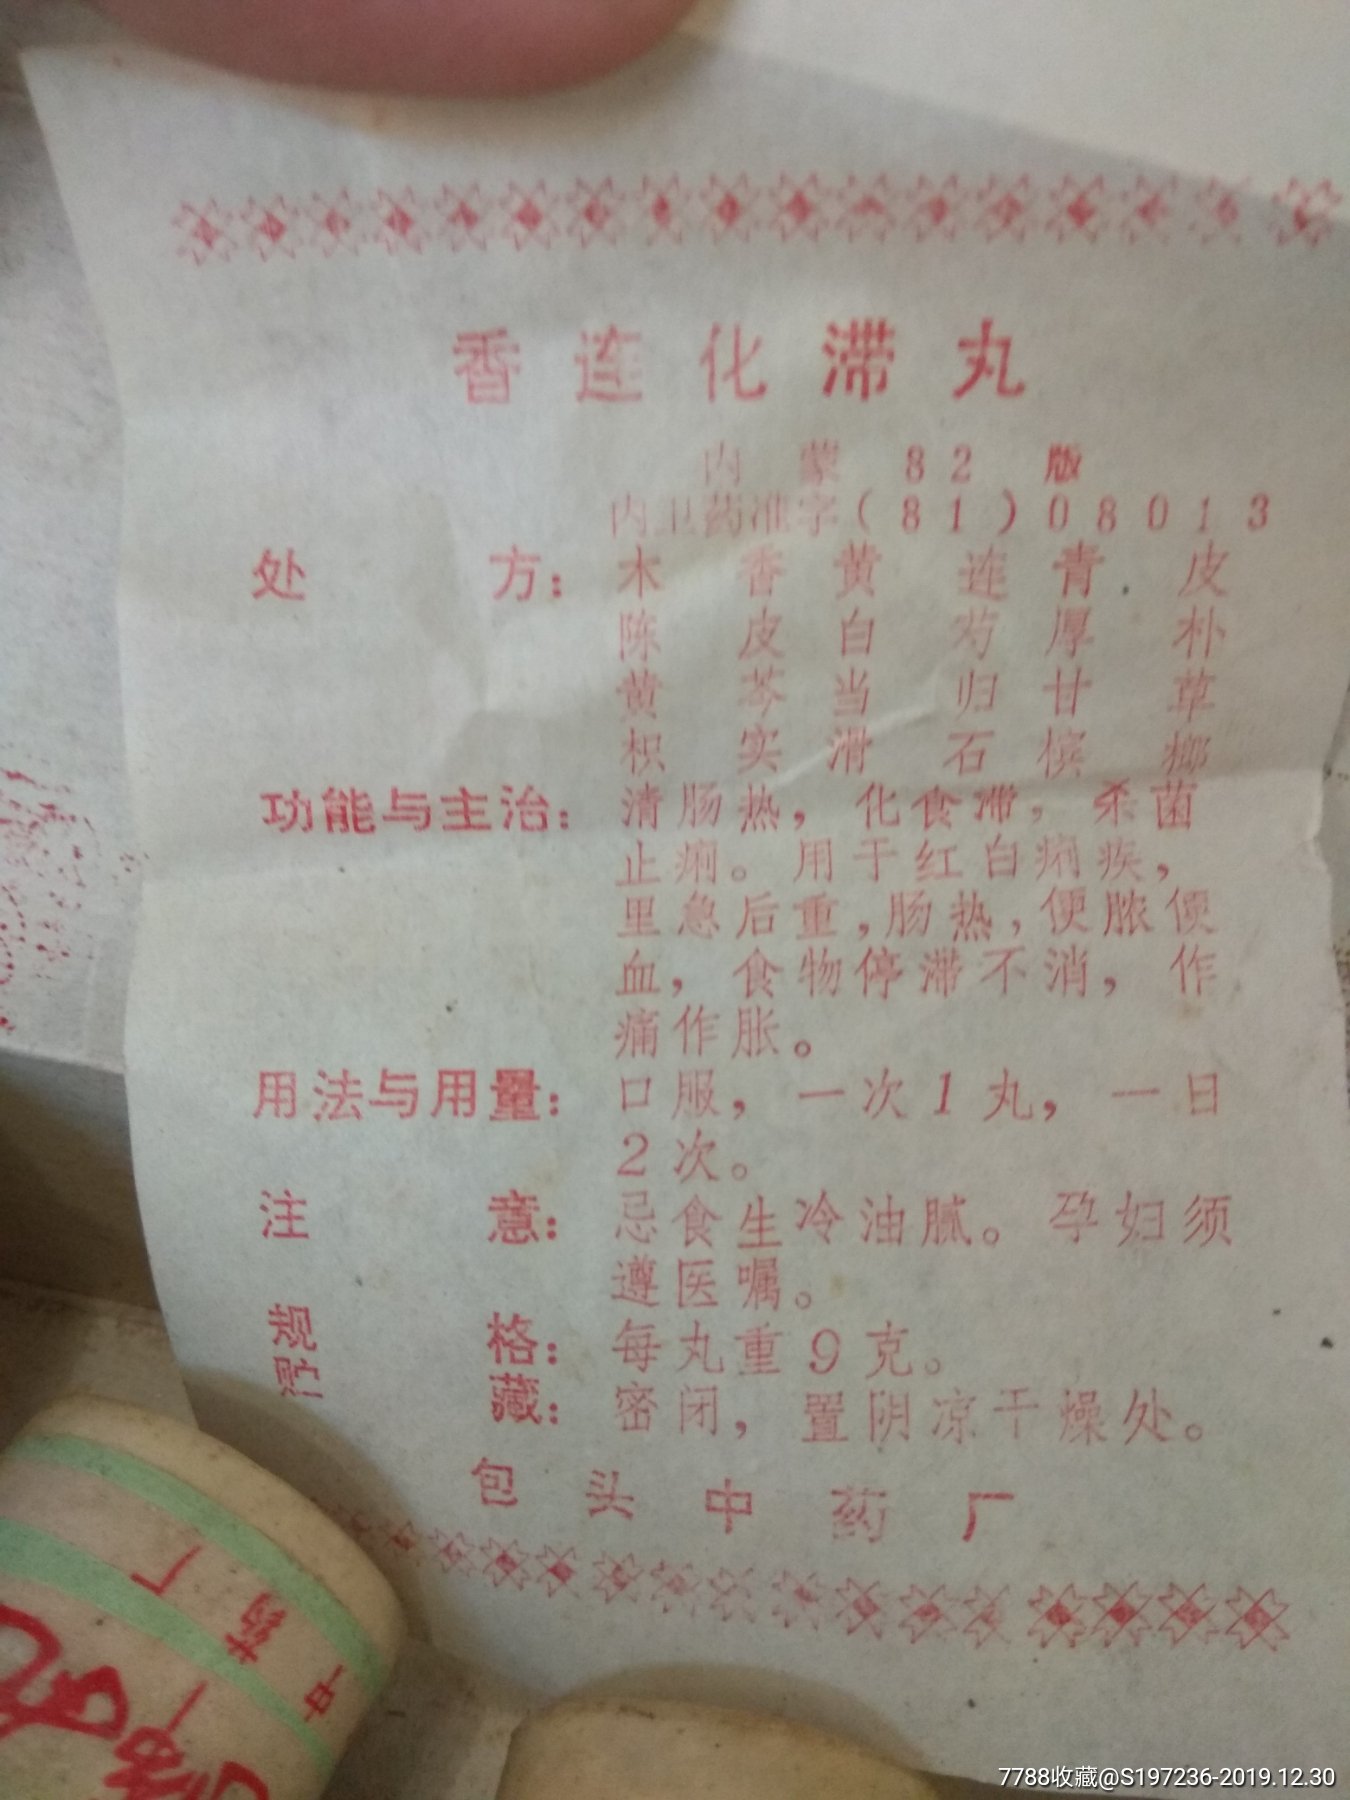 香连化滞丸
内蒙82版
内卫药准字(81)08013
处方：木香黄连青皮
陈皮白芍厚朴
黄芩当归甘草
枳实滑石槟榔
功能与主治：清肠热，化食滞，杀菌
止痢。用于红白痢疾，
里急后重，肠热，便脓便
血，食物停滞不消，作
痛作胀。
用法与用量：口服，一次1丸，一日
2次。
注意：忌食生冷油腻。孕妇须
遵医嘱。
规格：每丸重9克。
贮藏：密闭，置阴凉干燥处。
包头中药厂
中药厂
7788收藏@S197236-2019.12.30